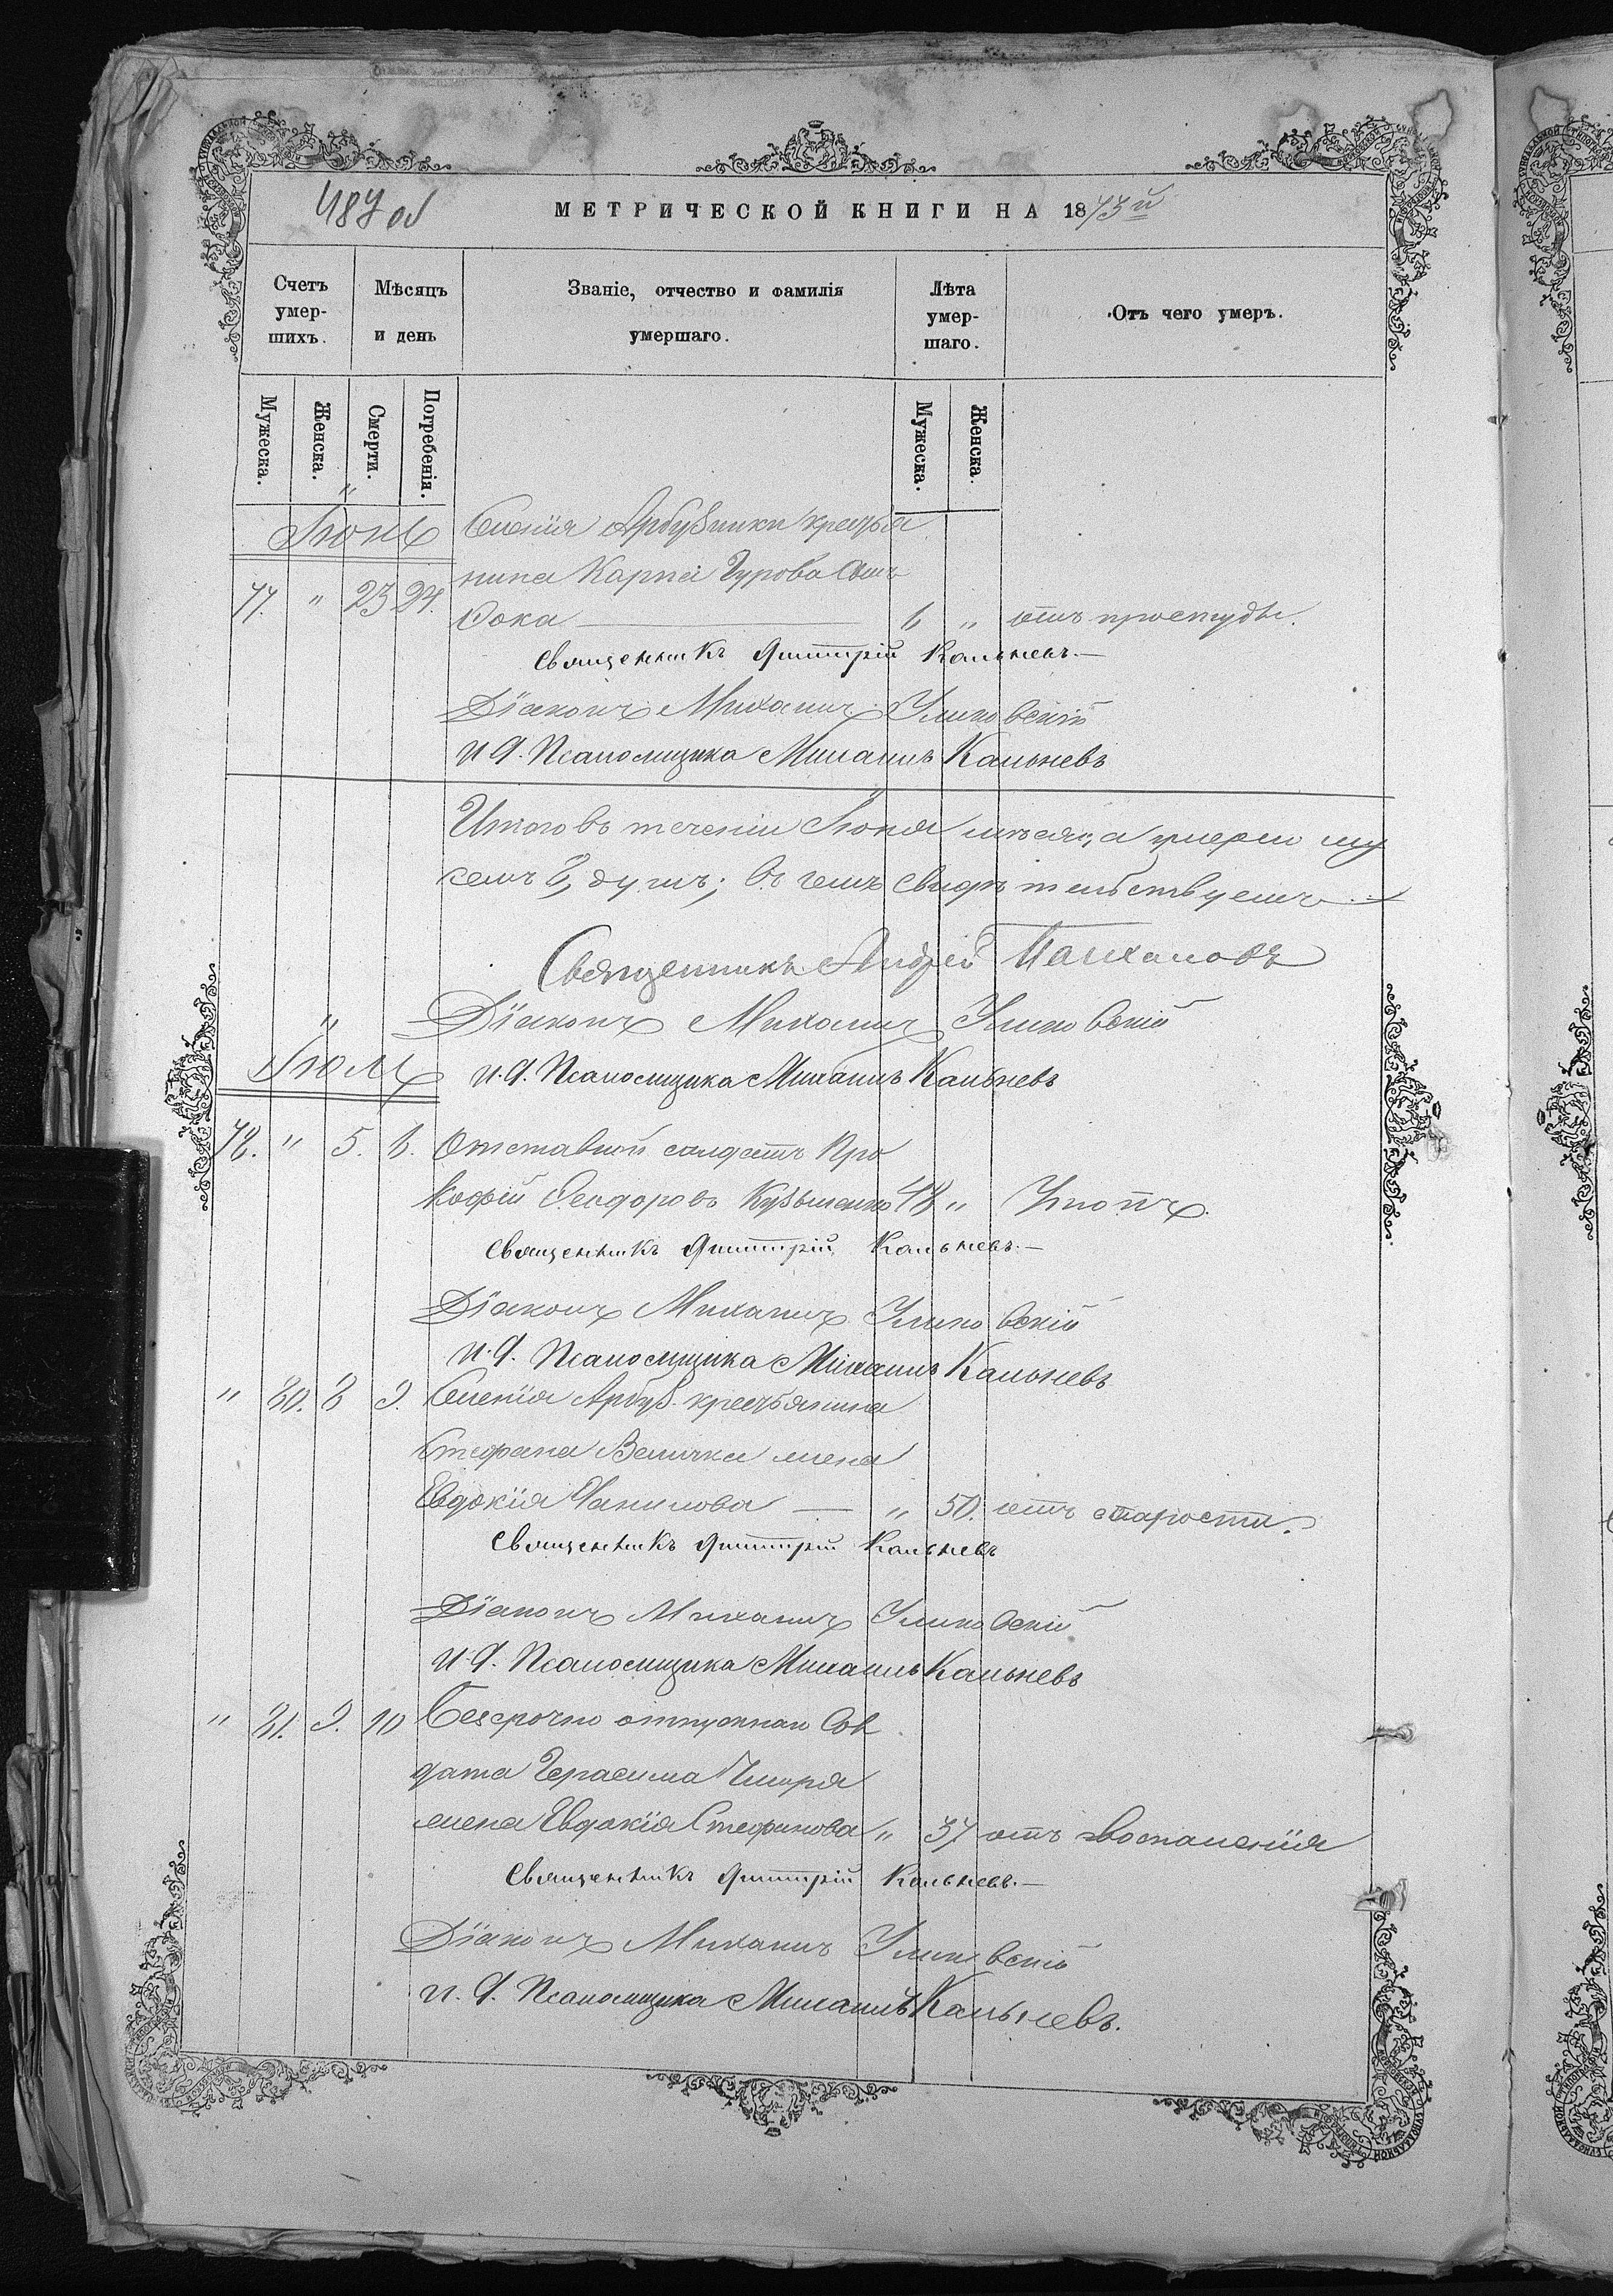 487 об
МЕТРИЧЕСКОЙ КНИГИ НА 1873й
Счетъ умер-шихъ.
Мѣсяцъ и день
Званіе, отчество и фамилія умершаго.
Лѣта умер-шаго.
Отъ чего умеръ.
Мужеска.
Женска.
Смерти.
Погребенія.
Мужеска.
Женска.
Іюнь Селенія Арбузинки крестья
нина Карпа Гурова сынъ
77. " 23 24. Фока 6 " отъ простуды.
Священникъ Димитрій Кальневъ.
Діаконъ Михаилъ
И. Д. Псаломщика Михаилъ Кальневъ
Итого въ теченіи Іюня мѣсяца умерло му
душъ; въ чемъ свидѣтельствуемъ
Священникъ Андрей
Діаконъ Михаилъ
Іюль И. Д. Псаломщика Михаилъ Кальневъ
78. " 5. 6. Отставной солдатъ Про
кофій Феодоровъ Кузьменко 48 "
Священникъ Димитрій Кальневъ.
Діаконъ Михаилъ
И. Д. Псаломщика Михаилъ Кальневъ
" 80. 8 9. Селенія Арбуз. крестьянина
Стефана Велички жена
Евдокія Данилова " 50. отъ старости.
Священникъ Димитрій Кальневъ
Діаконъ Михаилъ
И. Д. Псаломщика Михаилъ Кальневъ
" 81. 9. 10 Безсрочно отпускнаго Сол
дата Герасима жена Евдокія Стефанова " 37 отъ воспаленія
Священникъ Димитрій Кальневъ.
Діаконъ Михаилъ
И. Д. Псаломщика Михаилъ Кальневъ.